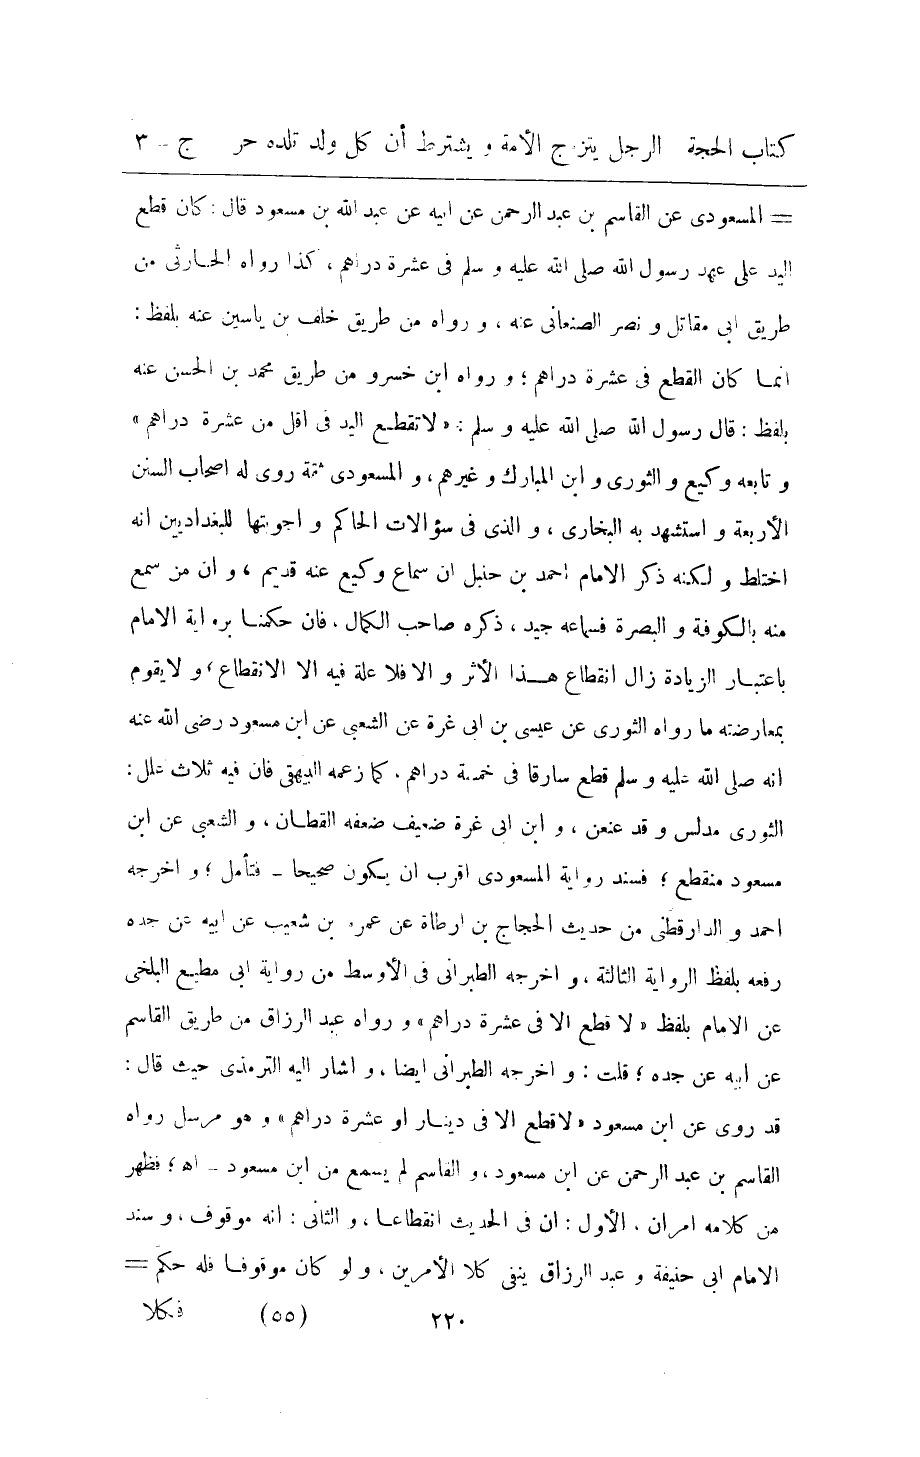 كتاب الحجة الرجل يتزوج الأمة و يشترط أن كل ولد تلده حر ج - ٣
= المسعودى عن القاسم بن عبد الرحمن عن ابيه عن عبد الله بن مسعود قال : كان قطع
اليد على عهد رسول الله صلى الله عليه و سلم فى عشرة دراهم ، كذا رواه الحارثى من
طريق ابى مقاتل و نصر الصنعانى عنه ، و رواه من طريق خلف بن ياسين عنه بلفظ :
انما كان القطع فى عشرة دراهم ؛ و رواه ابن خسرو من طريق محمد بن الحسن عنه
بلفظ : قال رسول الله صلى الله عليه و سلم : « لا تقطع اليد فى اقل من عشرة دراهم »
و تابعه وكيع و الثورى و ابن المبارك و غيرهم ، و المسعودى ثقة روى له اصحاب السنن
الأربعة و استشهد به البخارى ، و الذى فى سؤالات الحاكم و اجوبتها للبغداديين انه
اختلط و لكنه ذكر الامام احمد بن حنبل ان سماع وكيع عنه قديم ، و ان من سمع
منه بالكوفة و البصرة فسماعه جيد ، ذكره صاحب الكمال ، فان حكمنا برواية الامام
باعتبار الزيادة زال انقطاع هذا الأثر و الا فلا علة فيه الا الانقطاع ، و لا يقوم
بمعارضته ما رواه الثورى عن عيسى بن ابى غرة عن الشعبى عن ابن مسعود رضى الله عنه
انه صلى الله عليه و سلم قطع سارقا فى خمسة دراهم ، كما زعمه البيهقى فان فيه ثلاث علل :
الثورى مدلس و قد عنعن ، و ابن ابى غرة ضعيف ضعفه القطان ، و الشعبى عن ابن
مسعود منقطع ؛ فسند رواية المسعودى اقرب ان يكون صحيحا - فتأمل ؛ و اخرجه
احمد و الدارقطنى من حديث الحجاج بن ارطاة عن عمرو بن شعيب عن ابيه عن جده
رفعه بلفظ الرواية الثالثة ، و اخرجه الطبرانى فى الأوسط من رواية ابى مطيع البلخى
عن الامام بلفظ « لا قطع الا فى عشرة دراهم » و رواه عبد الرزاق من طريق القاسم
عن ابيه عن جده ؛ قلت : و اخرجه الطبرانى ايضا ، و اشار اليه الترمذى حيث قال :
قد روى عن ابن مسعود « لا قطع الا فى دينار او عشرة دراهم » و هو مرسل رواه
القاسم بن عبد الرحمن عن ابن مسعود ، و القاسم لم يسمع من ابن مسعود - اه ؛ فظهر
من كلامه امران ، الأول : ان فى الحديث انقطاعا ، و الثانى : انه موقوف ، و سند
الامام ابى حنيفة و عبد الرزاق ينفى كلا الأمرين ، و لو كان موقوفا فله حكم =
٢٢٠ (٥٥) فكلا